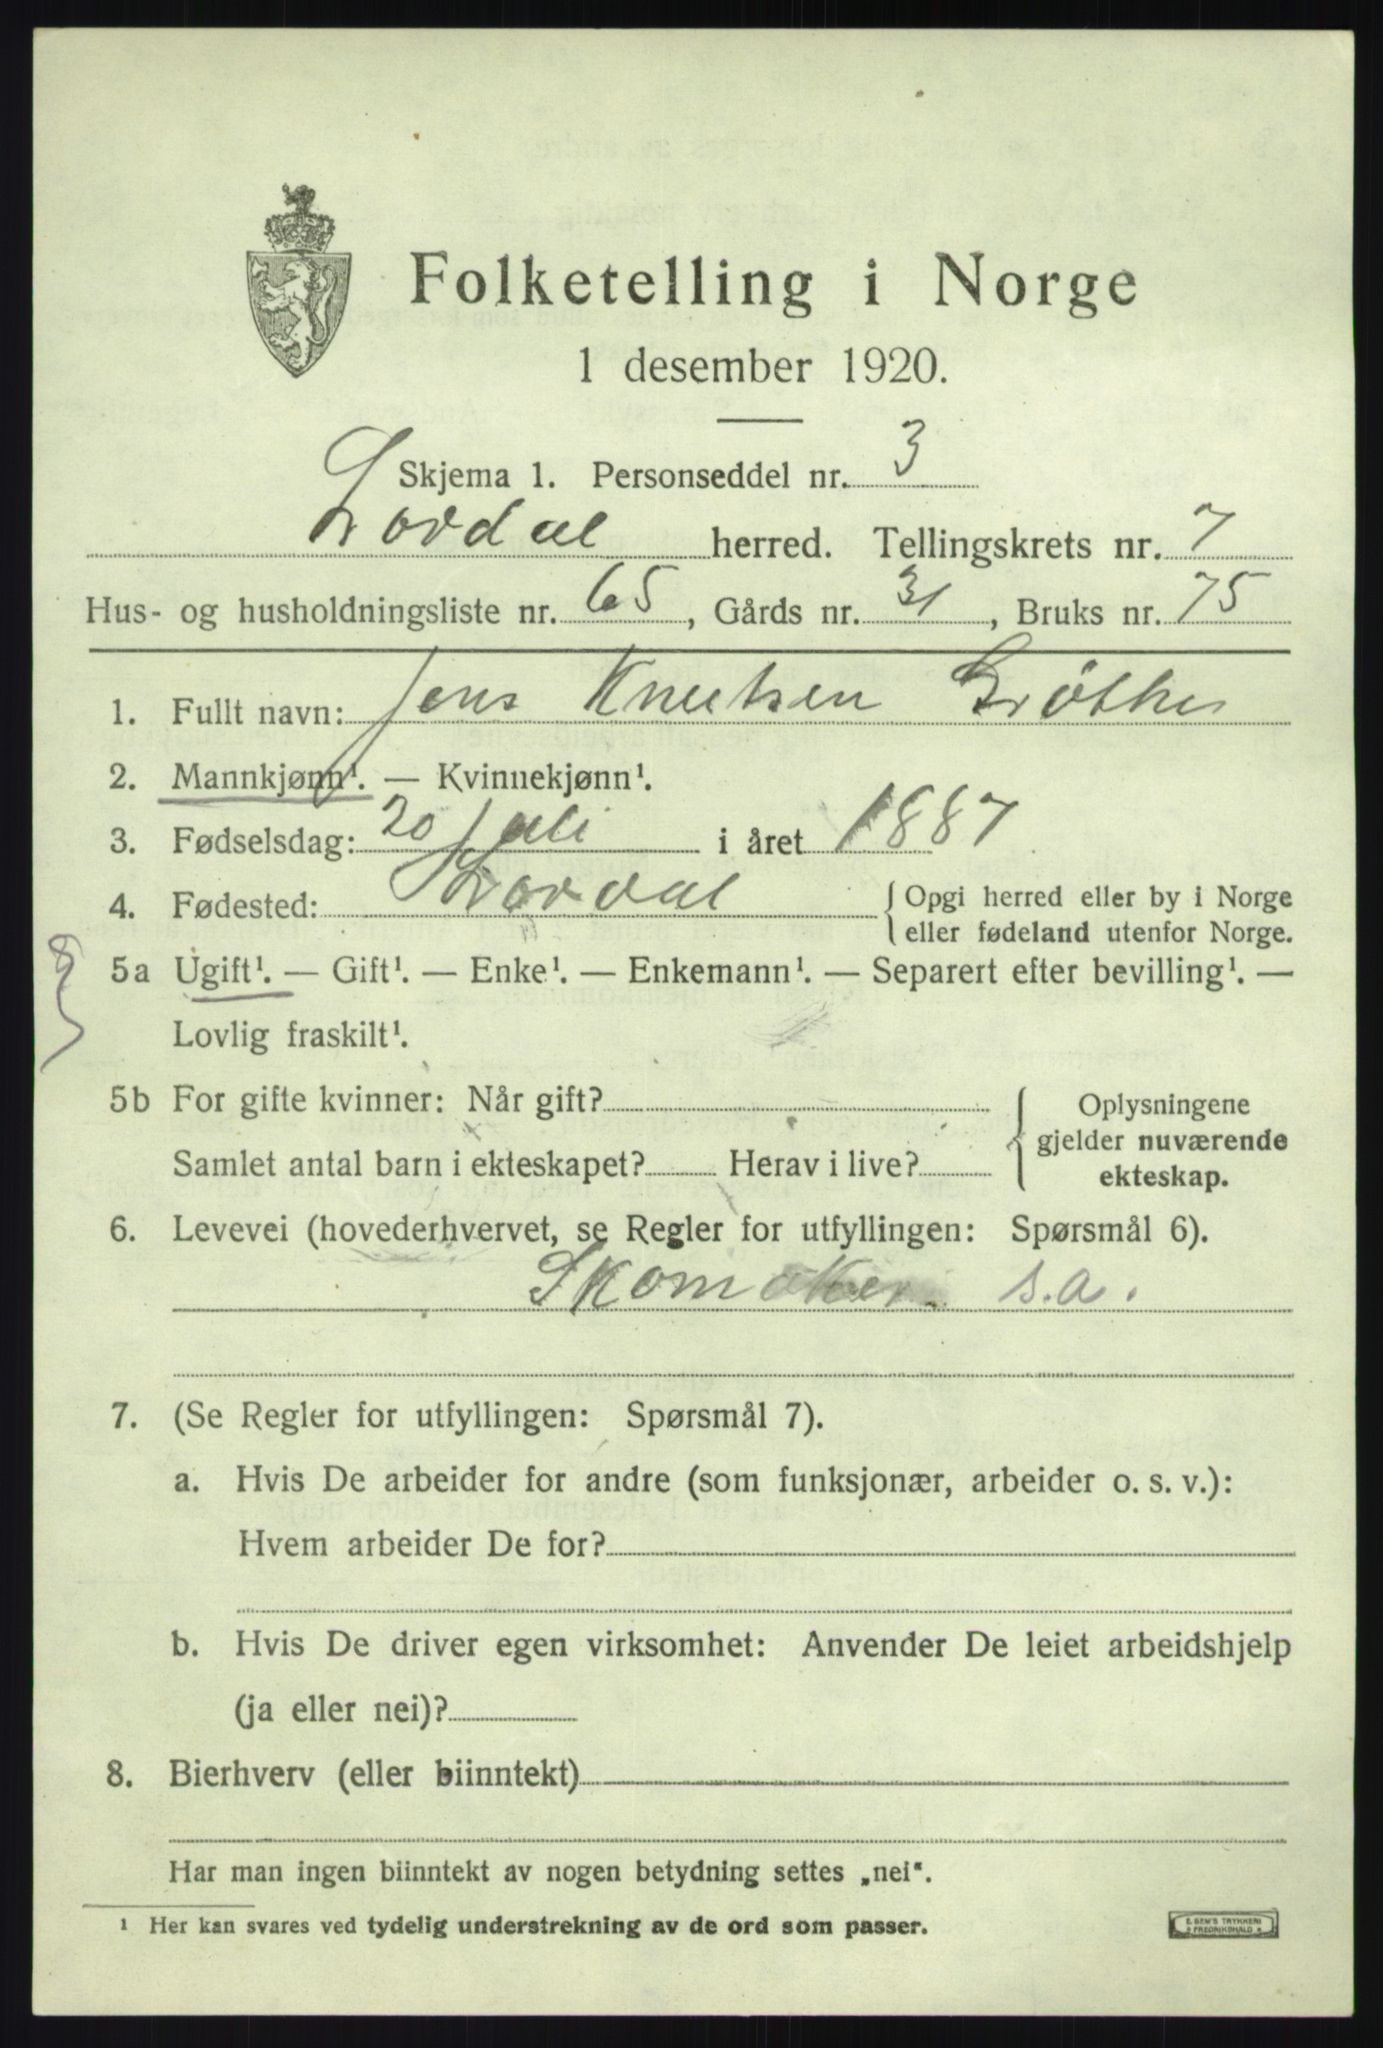 Folketelling i Norge
1 desember 1920.
Skjema 1. Personseddel nr. 3
Lordal herred. Tellingskrets nr. 7
Hus- og husholdningsliste nr. 65, Gårds nr. 31, Bruks nr. 75
1. Fullt navn: Jens Knutsen
2. Mannkjønn¹. — Kvinnekjønn¹.
3. Fødselsdag: 20 Juli i året 1887
4. Fødested: Lordal { Opgi herred eller by i Norge
eller fødeland utenfor Norge.
5a Ugift¹. — Gift¹. — Enke¹. — Enkemann¹. — Separert efter bevilling¹. —
Lovlig fraskilt¹.
5b For gifte kvinner: Når gift?
Samlet antal barn i ekteskapet? Herav i live?
Oplysningene
gjelder nuværende
ekteskap.
6. Levevei (hovederhvervet, se Regler for utfyllingen: Spørsmål 6).
Skomaker s.a.
7. (Se Regler for utfyllingen: Spørsmål 7).
a. Hvis De arbeider for andre (som funksjonær, arbeider o. s. v.):
Hvem arbeider De for?
b. Hvis De driver egen virksomhet: Anvender De leiet arbeidshjelp
(ja eller nei)?
8. Bierhverv (eller biinntekt)
Har man ingen biinntekt av nogen betydning settes „nei“.
¹ Her kan svares ved tydelig understrekning av de ord som passer.
E. SEM'S TRYKKERI
FREDRIKSHALD